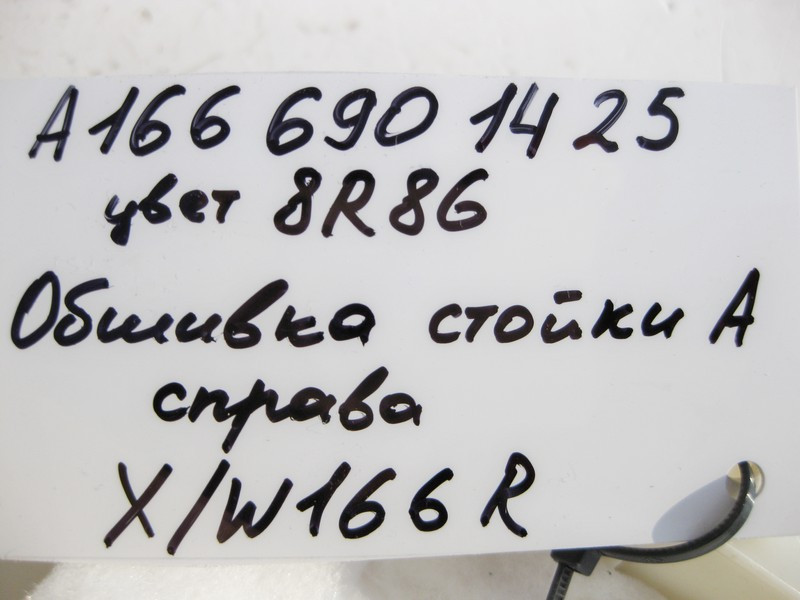 А166 690 14 25
цвет 8R86
Обшивка стойки А
справа
X/W166 R